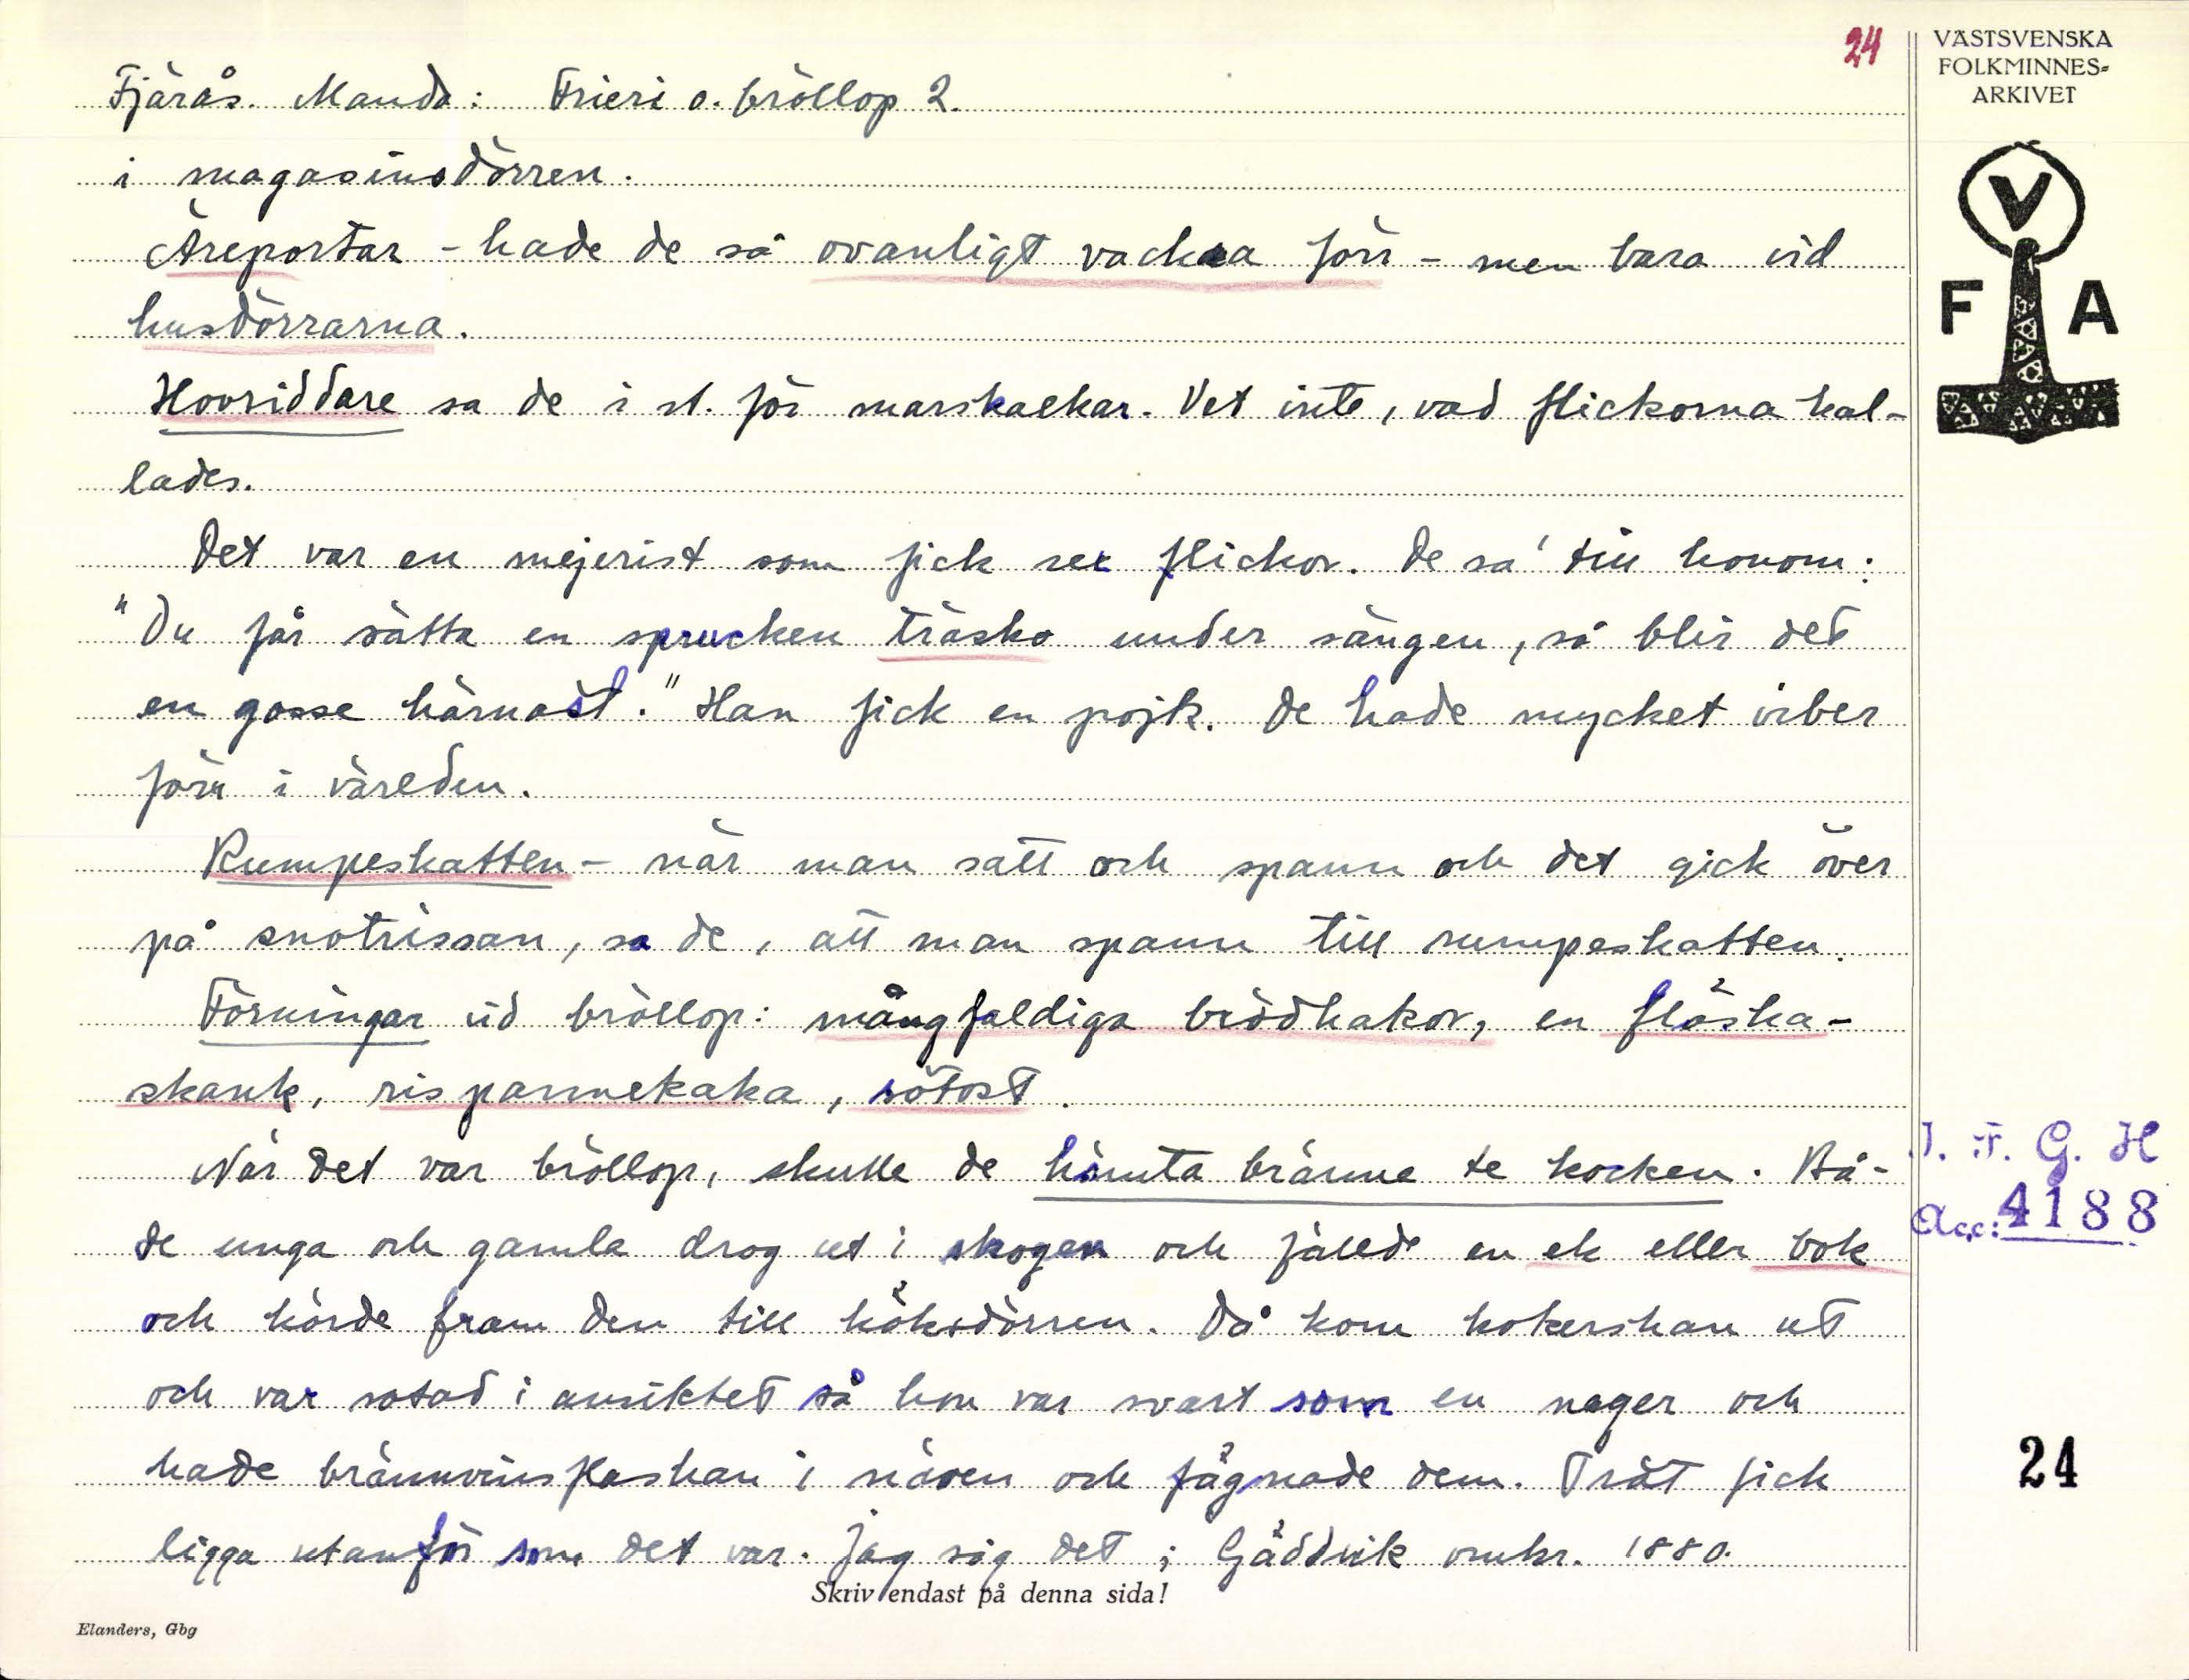 24
VÄSTSVENSKA
FOLKMINNES-
ARKIVET
Fjärås. Manda: Frieri o. bröllop 2.
i magasinsdörren.
Äreportar - hade de så ovanligt vackra förr - men bara vid
husdörrarna.
Hovriddare sa de i st. för marskalkar. Vet inte, vad flickorna kal-
lades.
Det var en mejerist som fick sex flickor. De sa' till honom:
"Du får sätta en sprucken träsko under sängen, så blir det
en gosse härnäst." Han fick en pojk. De hade mycket viber
förr i världen.
Rumpeskatten - när man satt och spann och det gick över
på snotrissan, sa de, att man spann till rumpeskatten.
Förningar vid bröllop: mångfaldiga brödkakor, en fläska-
skank, rispannekaka, sötost.
När det var bröllop, skulle de hämta bränne te kocken. Bå-
de unga och gamla drog ut i skogen och fällde en ek eller bok
och körde fram den till köksdörren. Då kom kokerskan ut
och var sotad i ansiktet så hon var svart som en neger och
hade brännvinsflaskan i näven och fägnade dem. Trät fick
ligga utanför som det var. Jag såg det i Gäddvik omkr. 1880.
V
F A
I. F. G. H
Acc: 4188
24
Skriv endast på denna sida!
Elanders, Gbg